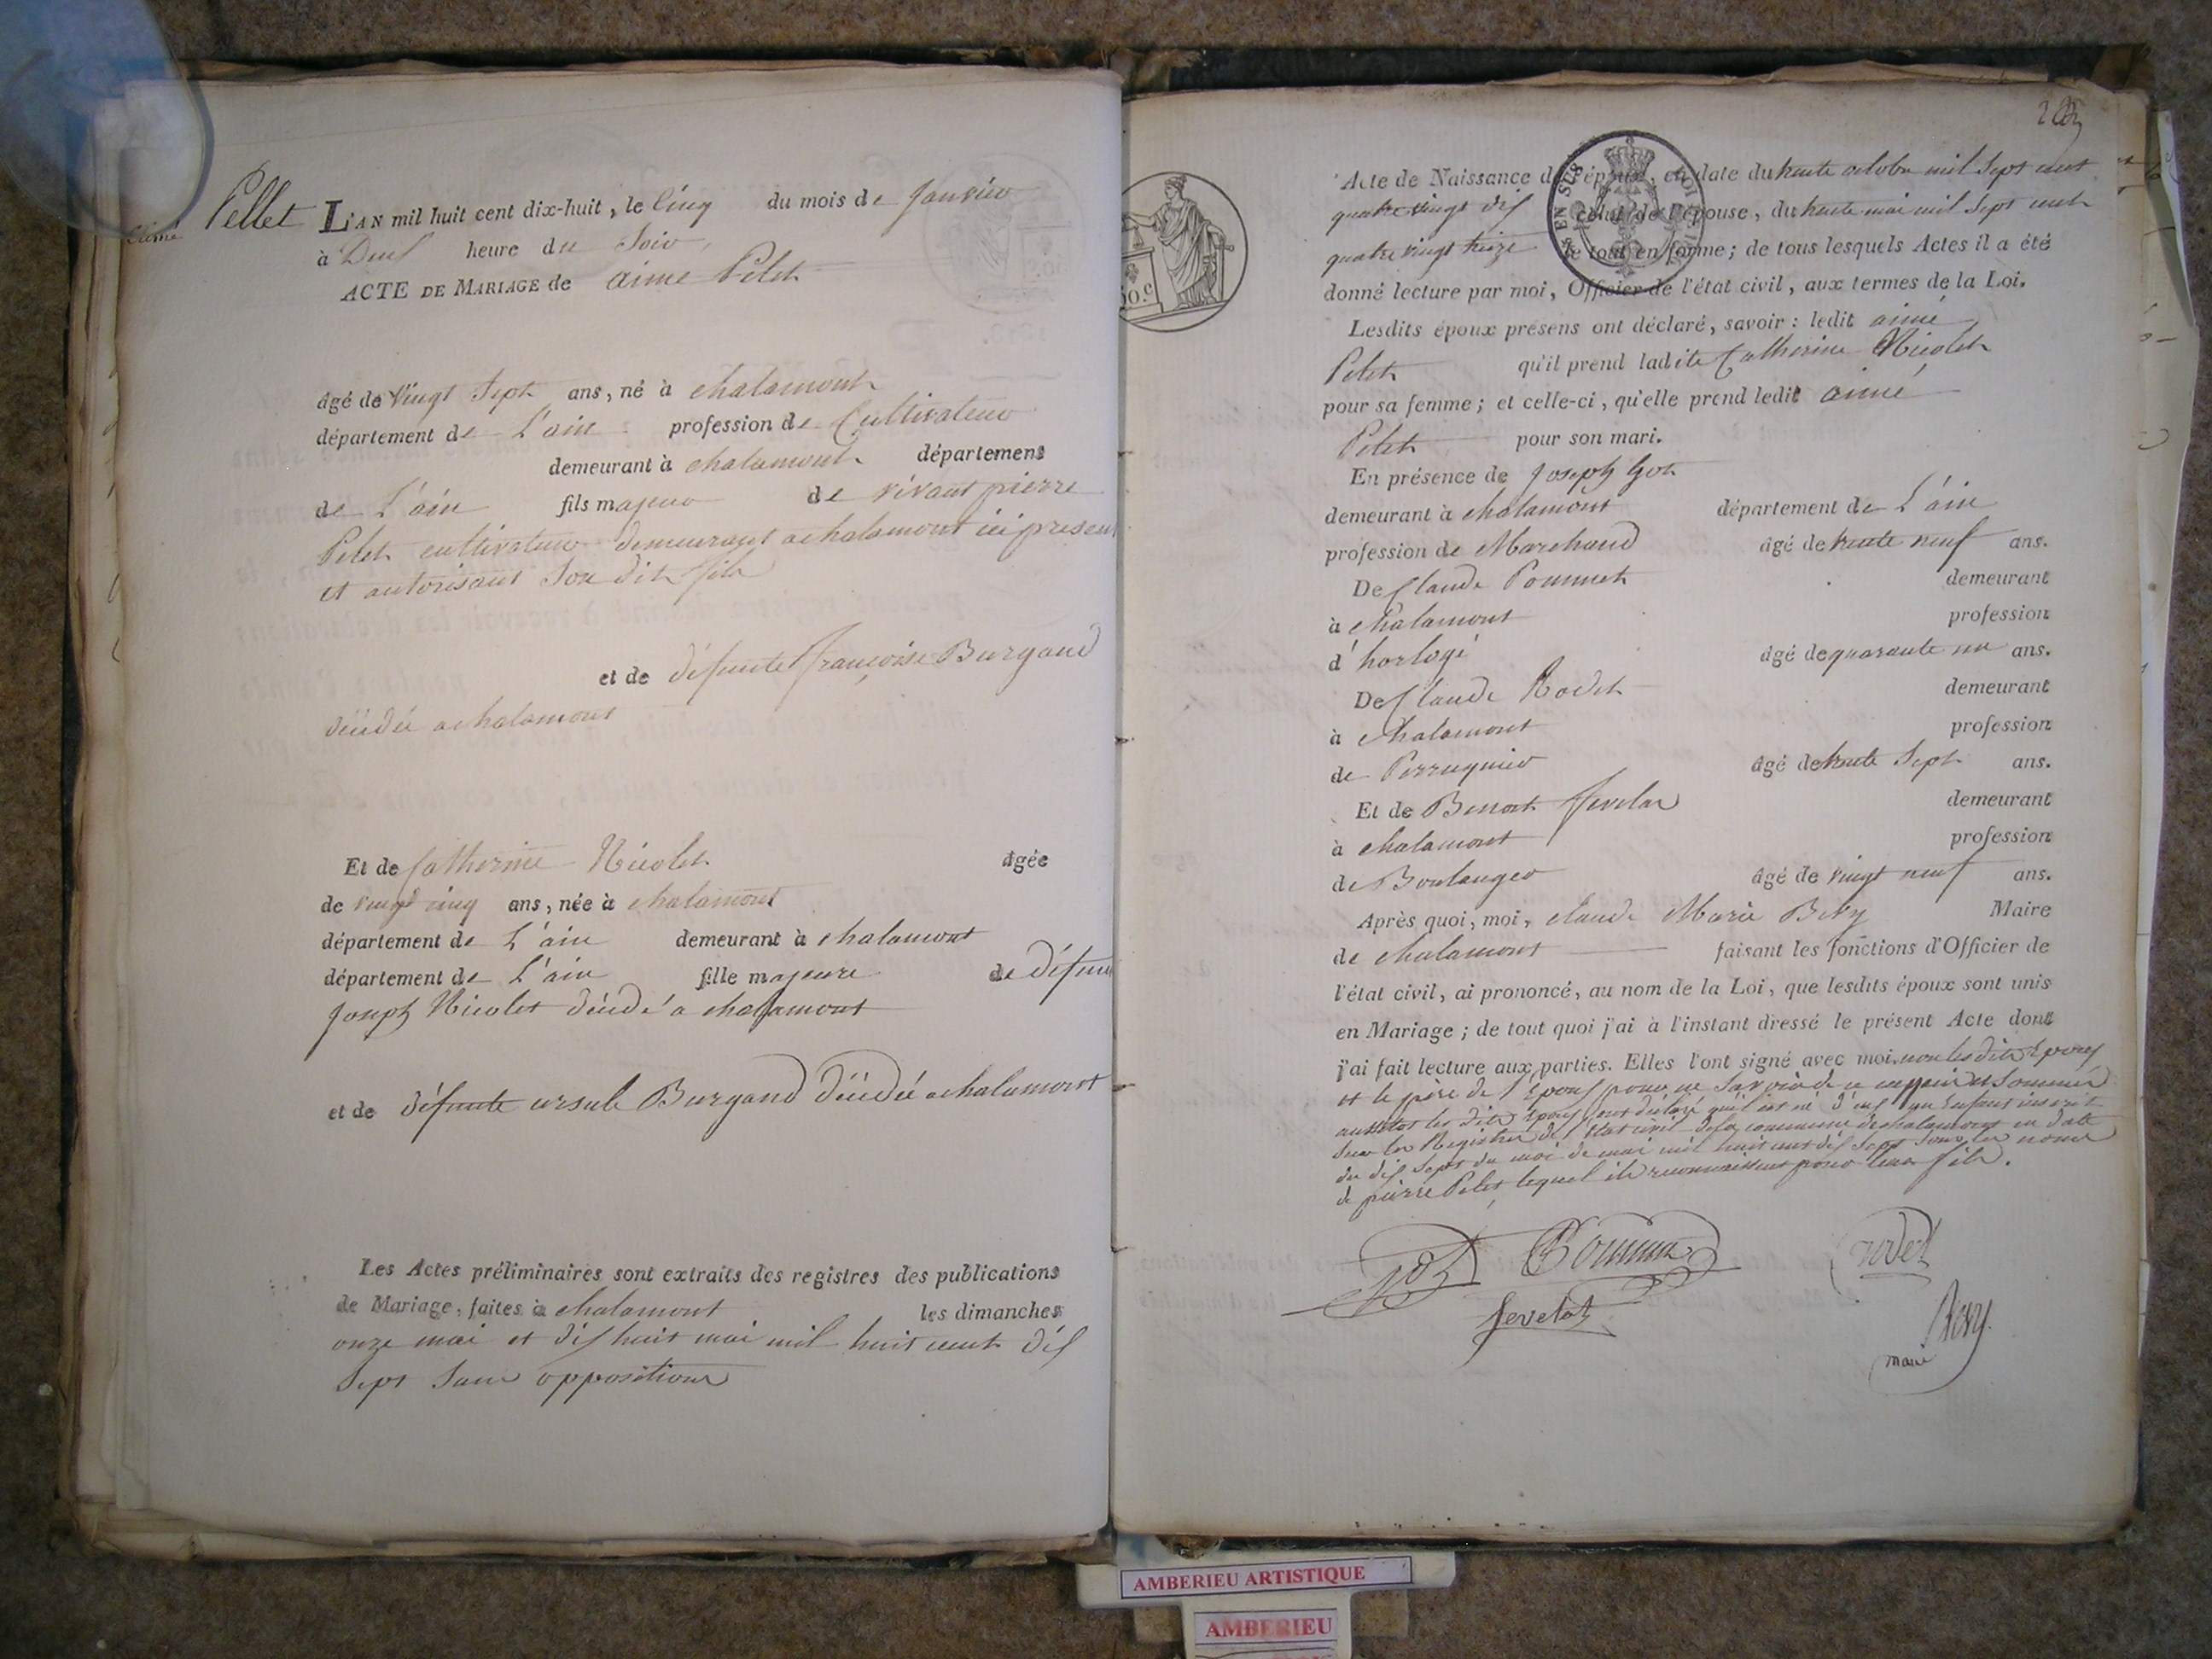 aimé Pellet
L'AN mil huit cent dix-huit, le Cinq du mois de Janvier
à Deux heure du Soir,
ACTE DE MARIAGE de aimé Pelet
âgé de Vingt Sept ans, né à chalamont
département de L'ain profession de Cultivateur
demeurant à chalamont département
de L'ain fils majeur de vivant pierre
Pelet cultivateur demeurant a chalamont ici present
et autorisant Son dit fils
et de défunte françoise Burgand
décédée a chalamont
Et de Catherine Nicolet agée
de vingt cinq ans, née à chalamont
département de L'ain demeurant à chalamont
département de L'ain fille majeure de défun
Joseph Nicolet décédé a chalamont
et de défunte ursule Burgand décédée a chalamont
Les Actes préliminaires sont extraits des registres des publications
de Mariage, faites à chalamont les dimanches
onze mai et dix huit mai mil huit cent dix
Sept Sans oppositions
Acte de Naissance de l'époux, en date du trente octobre mil Sept cent
quatre vingt dix celui de l'épouse, du trente mai mil Sept cent
quatre vingt treize le tout en forme; de tous lesquels Actes il a été
donné lecture par moi, Officier de l'état civil, aux termes de la Loi.
EN SUS
50.c
Lesdits époux présens ont déclaré, savoir: ledit aimé
Pelet qu'il prend ladite Catherine Nicolet
pour sa femme; et celle-ci, qu'elle prend ledit aimé
Pelet pour son mari.
En présence de Joseph Got
demeurant à chalamont département de L'ain
profession de Marchand âgé de trente neuf ans.
De Claude Pommet demeurant
à chalamont profession
d'horlogé âgé de quarante un ans.
De Claude Rodet demeurant
à chalamont profession
de Perruquier âgé de trente Sept ans.
Et de Benoit fevelat demeurant
à chalamont profession
de Boulanger âgé de vingt neuf ans.
Après quoi, moi, claude Marie Maire
de chalamont faisant les fonctions d'Officier de
l'état civil, ai prononcé, au nom de la Loi, que lesdits époux sont unis
en Mariage; de tout quoi j'ai à l'instant dressé le présent Acte dont
j'ai fait lecture aux parties. Elles l'ont signé avec moi non les dits Epoux
et le père de l'Epoux pour ne Savoir de ce enquis et Sommés
aussitot les dits Epoux ont déclaré qu'il est né d'eux un Enfant inscrit
Sur les Registres de l'Etat civil de la commune de chalamont en date
du dix Sept du moi de mai mil huit cent dix Sept Sous les noms
de pierre Pelet, lequel ils reconnaissent pour leur fils.
Got Pommet Rodet
fevelat
maire
AMBERIEU ARTISTIQUE
AMBERIEU